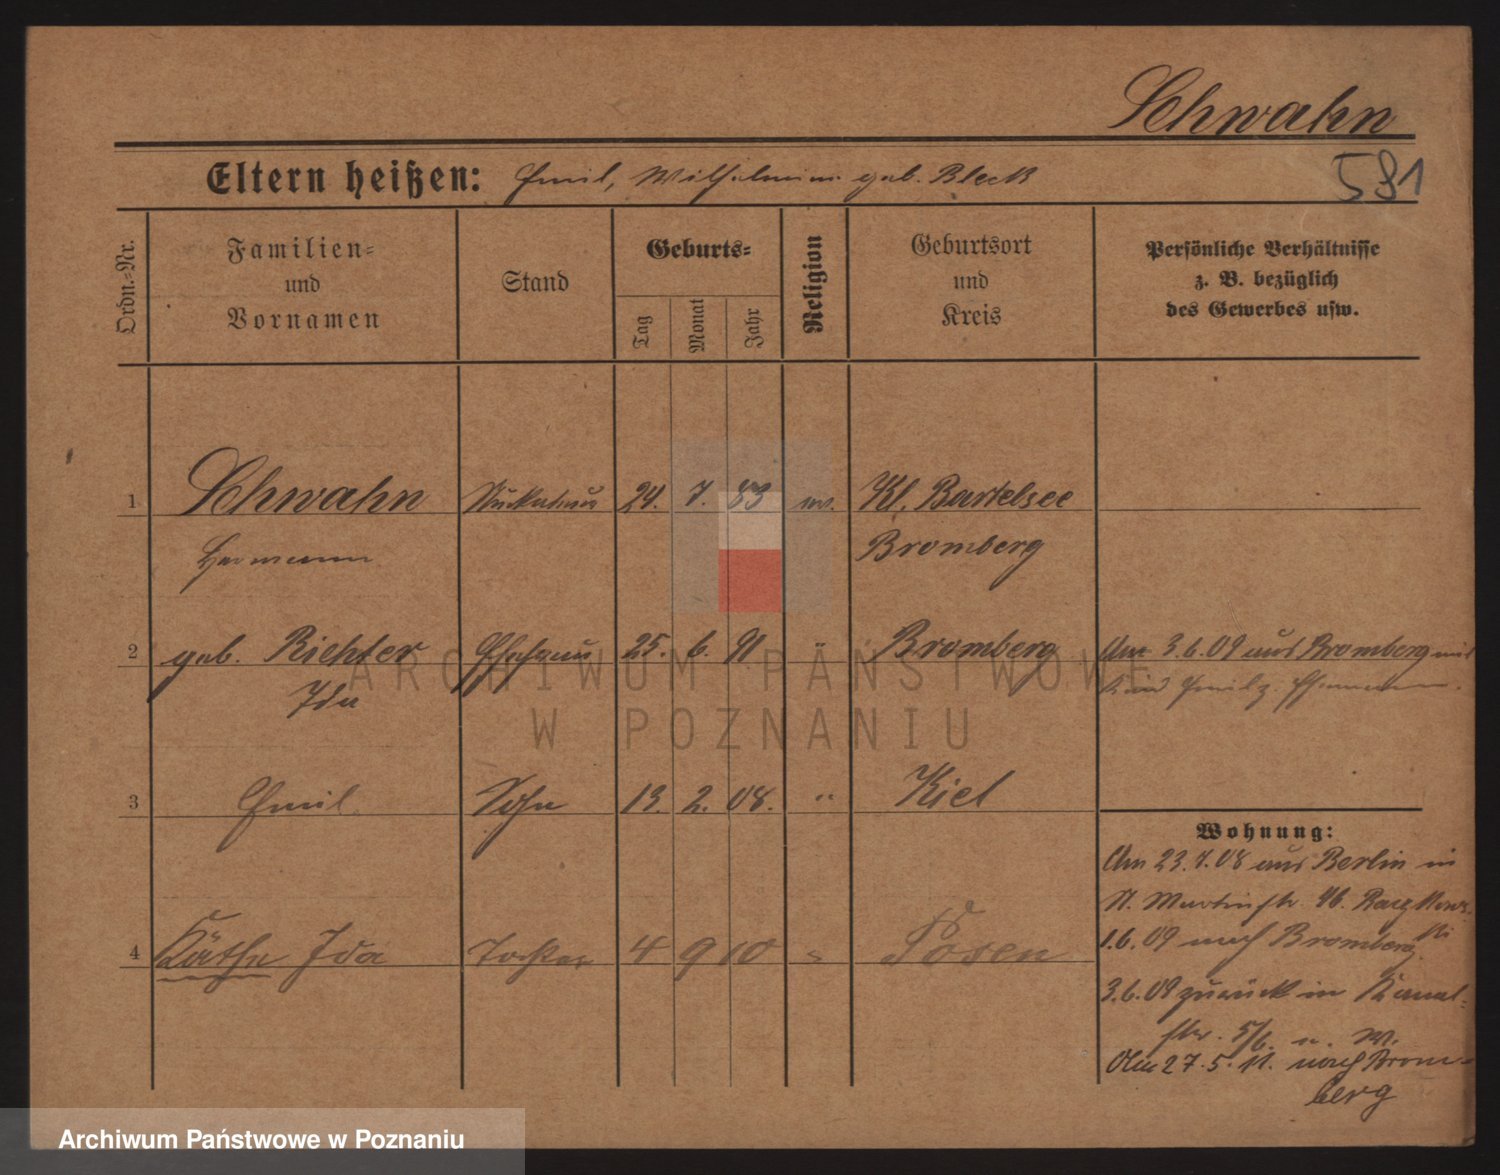 Schwahn
581
Eltern heißen: Emil, Wilhelmine geb. Bleck
Ordn.-Nr.
Familien-
und
Vornamen
Stand
Geburts-
Tag
Monat
Jahr
Religion
Geburtsort
und
Kreis
Persönliche Verhältnisse
z. B. bezüglich
des Gewerbes usw.
1 Schwahn Stukateur 24. 7. 83 ev. Kl. Bartelsee
Hermann Bromberg
2 geb. Richter Ehefrau 25. 6. 91 " Bromberg Am 3.6.09 aus Bromberg mit
Ida Kind Emil z. Ehemann.
ARCHIWUM PAŃSTWOWE
W POZNANIU
3 Emil Sohn 13. 2. 08. " Kiel
Wohnung:
Am 23.7.08 aus Berlin in
St. Martinstr. 46.
1.6.09 nach Bromberg.
4 Käthe Ida Tochter 4 9 10 " Posen
3.6.09 zurück in Kanal-
str. 5/6. u. W.
Am 27.5.11. nach Brom-
berg
Archiwum Państwowe w Poznaniu